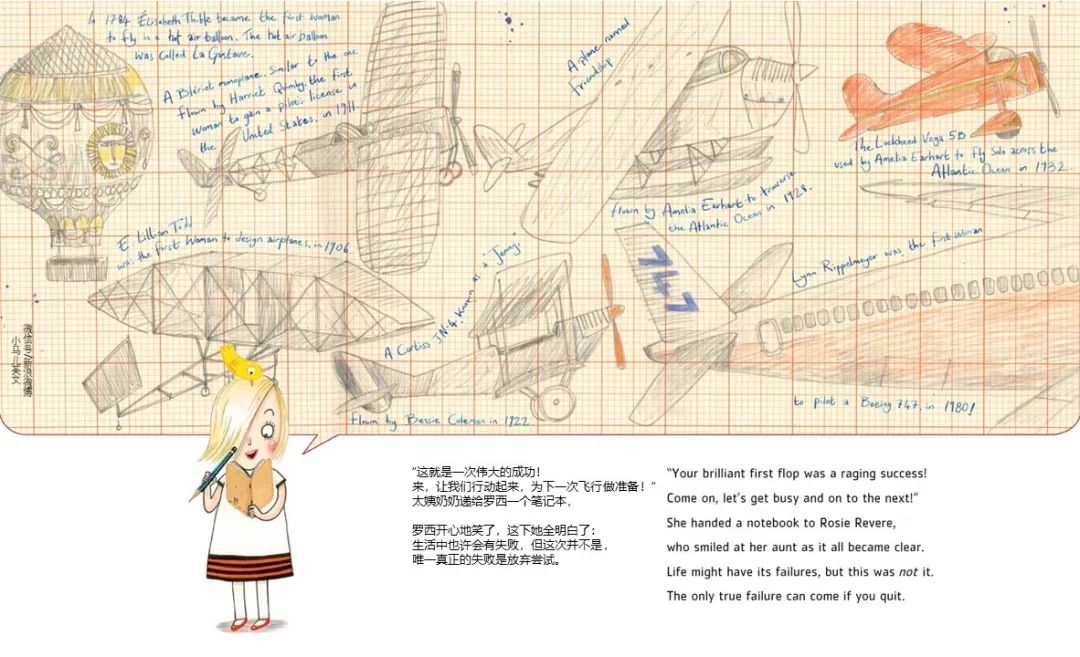 In 1784 Élisabeth Thible became the first woman
to fly in a hot air balloon. The hot air balloon
was called La Gustave.
A Blériot monoplane. Similar to the one
flown by Harriet Quimby, the first
woman to gain a pilot's license in
the United States, in 1911
A plane named
friendship
flown by Amelia Earhart to traverse
the Atlantic Ocean in 1928.
The Lockheed Vega 5B
used by Amelia Earhart to fly Solo across the
Atlantic Ocean in 1932.
E Lillian Todd
was the first woman to design airplanes, in 1906
A Curtiss JN-4. Known as a "Jenny"
flown by Bessie Coleman in 1922
747
Lynn Rippelmeyer was the first woman
to pilot a Boeing 747, in 1980!
微信号/新浪微博
小马儿英文
“这就是一次伟大的成功！
来，让我们行动起来，为下一次飞行做准备！”
太姨奶奶递给罗西一个笔记本，
罗西开心地笑了，这下她全明白了：
生活中也许会有失败，但这次并不是，
唯一真正的失败是放弃尝试。
“Your brilliant first flop was a raging success!
Come on, let’s get busy and on to the next!”
She handed a notebook to Rosie Revere,
who smiled at her aunt as it all became clear.
Life might have its failures, but this was not it.
The only true failure can come if you quit.